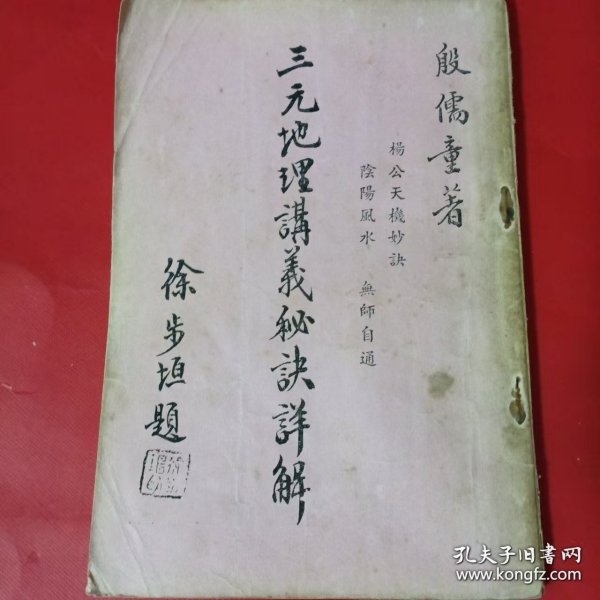 殷儒童著
楊公天機妙訣
陰陽風水 無師自通
三元地理講義秘訣詳解
徐步垣題
孔夫子旧书网
www.kongfz.com